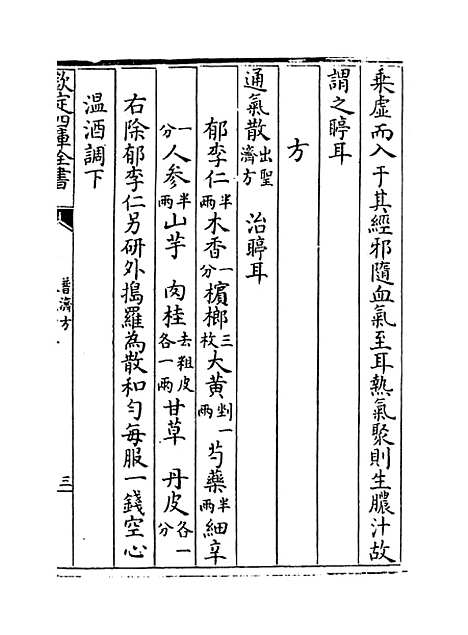 乗虛而入于其經邪隨血氣至耳熱氣聚則生膿汁故
謂之聤耳
方
通氣散出聖濟方 治聤耳
郁李仁半兩木香一分檳榔三枚大黄剉一兩芍藥半兩細辛
一分人参半兩山芋 肉桂去粗皮各一兩甘草 丹皮各一分
右除郁李仁另研外搗羅為散和勻每服一錢空心
温酒調下
欽定四庫全書
普濟方
三